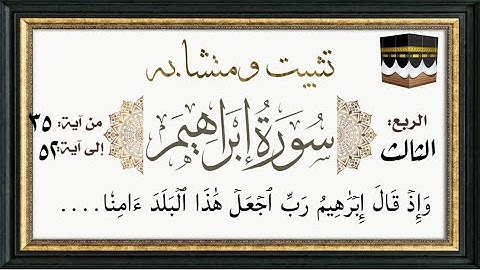 تثبيت ومتشابه
الربع:
الثالث
سورة إبراهيم
من آية: ٣٥
إلى آية: ٥٢
وَإِذْ قَالَ إِبْرَٰهِيمُ رَبِّ ٱجْعَلْ هَٰذَا ٱلْبَلَدَ ءَامِنًا....